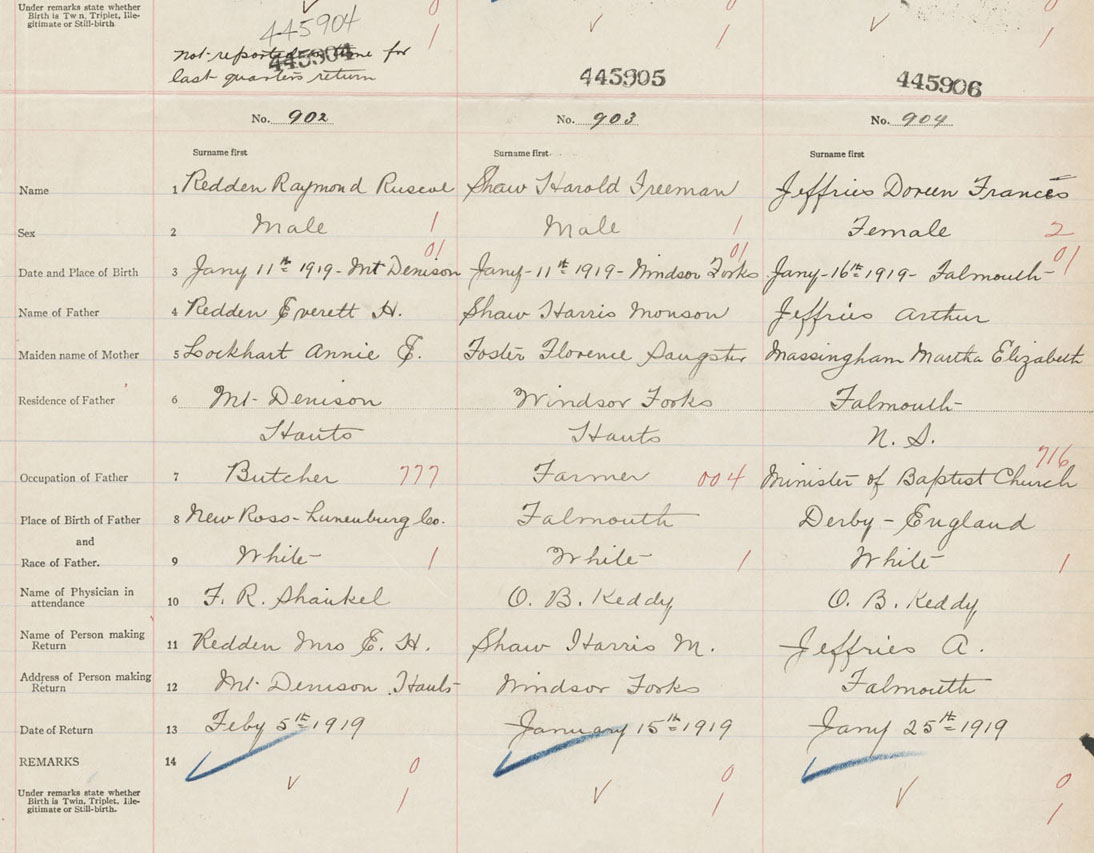 Under remarks state whether
Birth is Twin, Triplet, Ille-
gitimate or Still-birth
√ 0 1
√ 1
√ 1
445904
not reported in time for
last quarters return
445904
445905
445906
No. 902
No. 903
No. 904
Surname first
Surname first
Surname first
Name 1 Redden Raymond Ruscoe
Shaw Harold Freeman
Jeffries Doreen Frances
Sex 2 Male 1
Male 1
Female 2
01
01
01
Date and Place of Birth 3 Jany 11th 1919 - Mt Denison
Jany - 11th 1919 - Windsor Forks
Jany - 16th 1919 - Falmouth -
Name of Father 4 Redden Everett H.
Shaw Harris Monson
Jeffries Arthur
Maiden name of Mother 5 Lockhart Annie E.
Foster Florence Sangster
Massingham Martha Elizabeth
Residence of Father 6 Mt- Denison
Windsor Forks
Falmouth -
Hants
Hants
N. S.
Occupation of Father 7 Butcher 777
Farmer 004
716
Minister of Baptist Church
Place of Birth of Father 8 New Ross - Lunenburg Co.
Falmouth
Derby - England
and
Race of Father. 9 White 1
White 1
White 1
Name of Physician in
attendance 10 F. R. Shankel
O. B. Keddy
O. B. Keddy
Name of Person making
Return 11 Redden Mrs E. H.
Shaw Harris M.
Jeffries A.
Address of Person making
Return 12 Mt- Denison, Hants
Windsor Forks
Falmouth
Date of Return 13 Feby 5th 1919
January 15th 1919
Jany 25th 1919
REMARKS 14
Under remarks state whether
Birth is Twin, Triplet, Ille-
gitimate or Still-birth.
√ 0 1
√ 0 1
√ 0 1